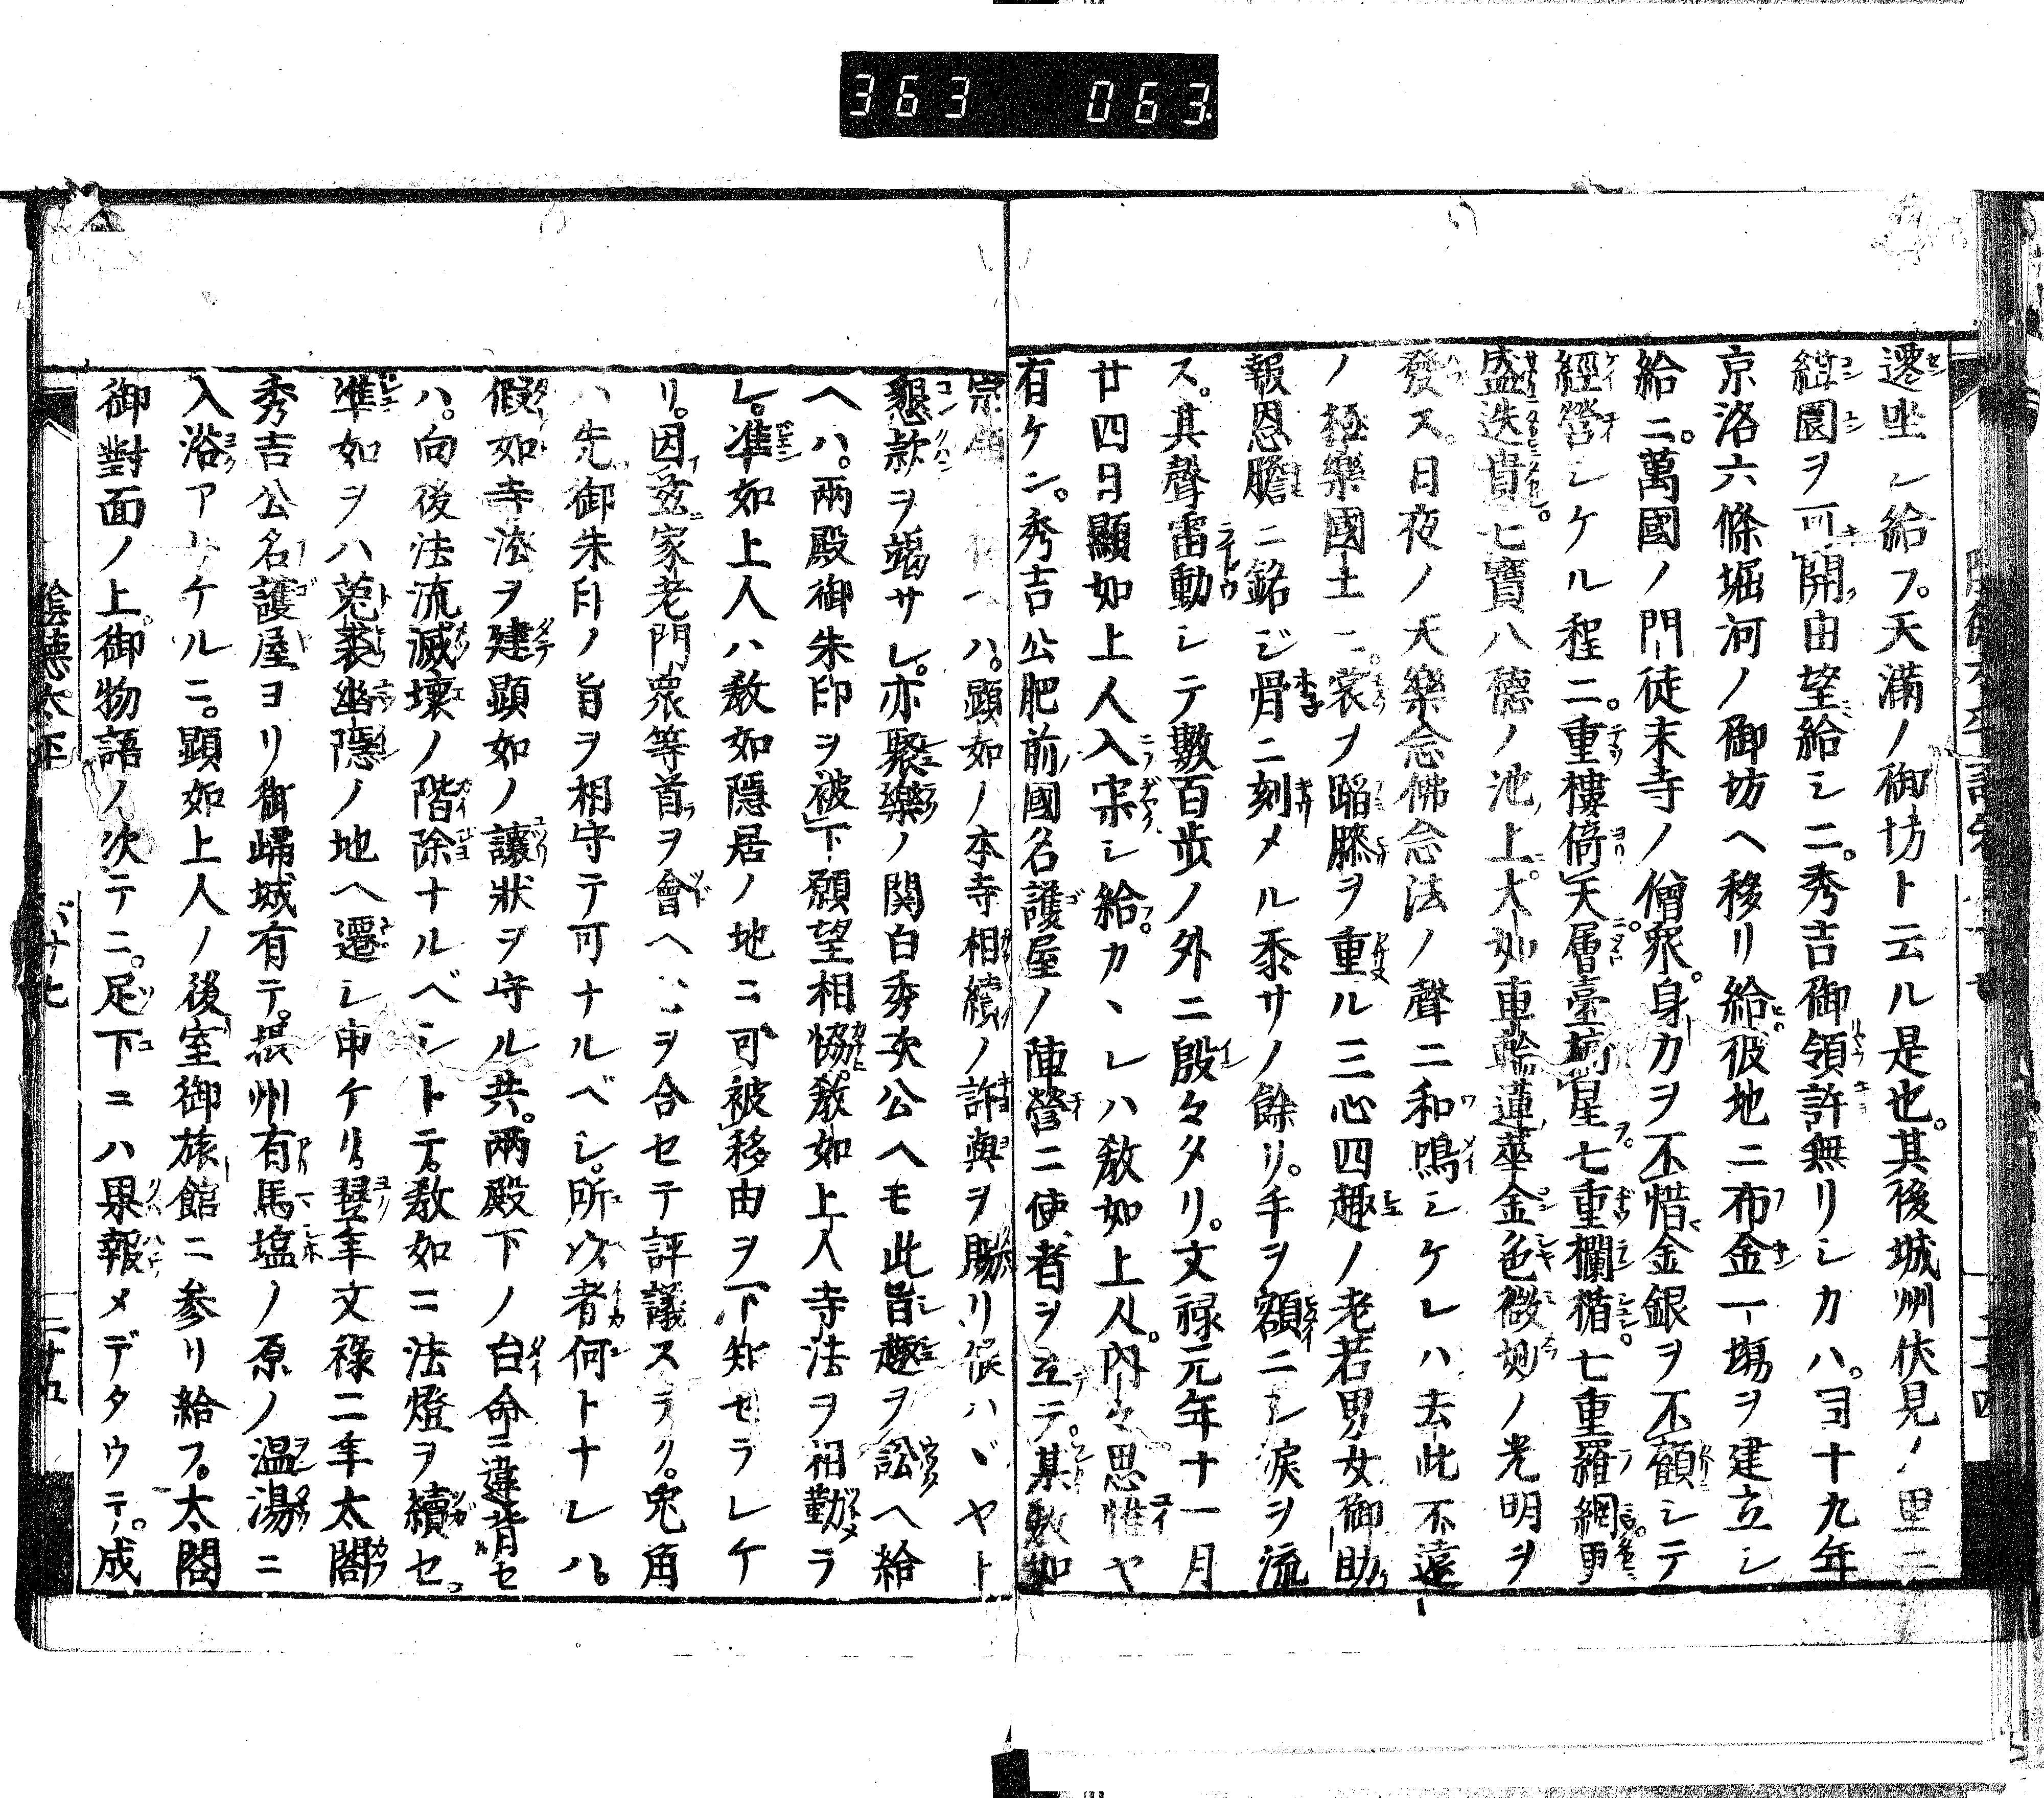 363 063
遷坐シ給フ。天滿ノ御坊ト云ル是也。其後城州伏見ノ里ニ
紺園ヲ可開由望給シニ。秀吉御領許無リシカハ。同十九年
京洛六條堀河ノ御坊ヘ移リ給彼地ニ布金一場ヲ建立シ
給ニ。萬國ノ門徒末寺ノ僧衆。身カヲ不惜金銀ヲ不顧シテ
經營シケル程ニ。重樓倚天層臺摘星七重欄楯。七重羅網。更
盛迭貴。七寶八德ノ池上。大如車輪蓮華金色微妙ノ光明ヲ
發ス。日夜ノ天樂念佛念法ノ聲ニ和鳴シケレハ去此不遠
ノ極樂國土ニ。裳ヲ蹈膝ヲ重ル三心四趣ノ老若男女御助
報恩膽ニ銘ジ骨ニ刻メル忝サノ餘リ。手ヲ額ニシ涙ヲ流
ス。其聲雷動シテ數百歩ノ外ニ殷々タリ。文禄元年十一月
廿四日顯如上人入寂シ給。カヽレハ教如上人。內々思惟ヤ
有ケン。秀吉公肥前國名護屋ノ陣營ニ使者ヲ立テ。某教如
ヘハ。顕如ノ本寺相續ノ許與ヲ賜リ候ハヾヤト
懇款ヲ竭サレ。亦聚樂ノ関白秀次公ヘモ此旨趣ヲ訟ヘ給
ヘハ。兩殿御朱印ヲ被下願望相協。教如上人寺法ヲ相勤ラ
レ。准如上人ハ教如隱居ノ地ニ可被移由ヲ下知セラレケ
リ。因茲家老門衆等首ヲ會ヘ ヲ合セテ評議スラク。兎角
ハ先御朱印ノ旨ヲ相守テ可ナルベシ。所以者何トナレハ。
假如寺法ヲ建顕如ノ讓狀ヲ守ル共。兩殿下ノ台命ニ違背セ
ハ。向後法流滅壞ノ階除ナルベシトテ。教如ニ法燈ヲ續セ。
準如ヲハ菟裘幽隱ノ地ヘ遷シ申ケリ。翌年文祿二年太閤
秀吉公名護屋ヨリ御歸城有テ。摂州有馬塩ノ原ノ温湯ニ
入浴アリケルニ。顕如上人ノ後室御旅館ニ参リ給フ。太閤
御對面ノ上。御物語ノ次テニ。足下ニハ果報メデタウテ。成
陰德太平
二十五